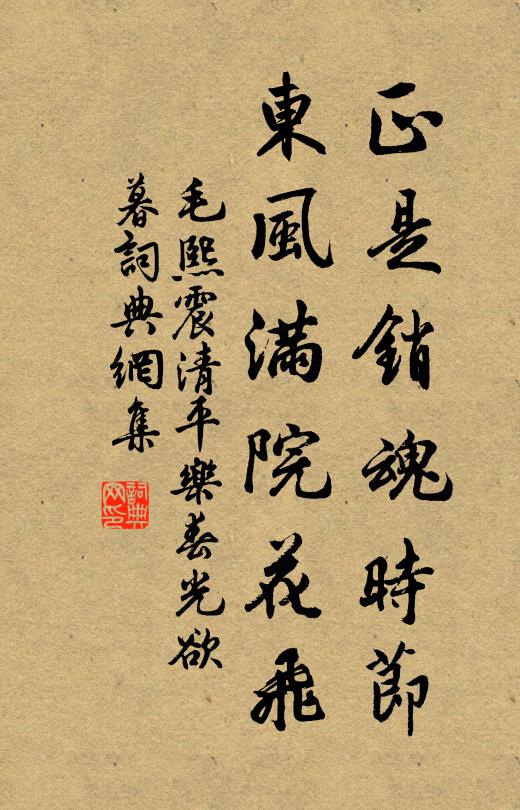 正是銷魂時節
東風滿院花飛
毛熙震清平樂春光欲
暮詞典網集
詞典
网印